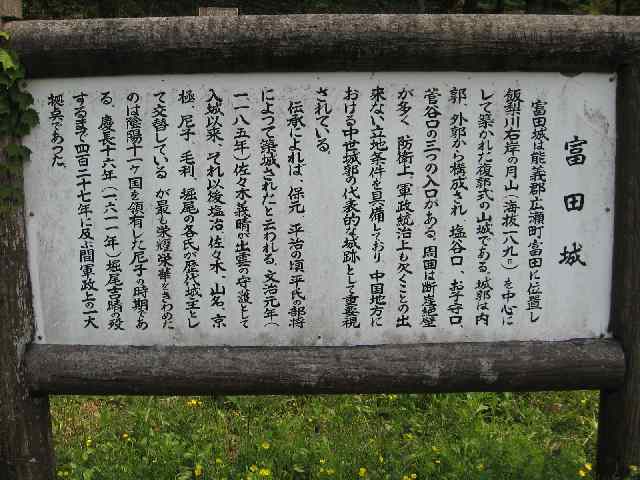 富田城
富田城は能義郡広瀬町富田に位置し
飯梨川右岸の月山(海抜一八九m)を中心に
して築かれた複郭式の山城である。城郭は内
郭、外郭から構成され、塩谷口、お子守口、
菅谷口の三つの入口がある。周囲は断崖絶壁
が多く、防衛上、軍政統治上も欠くことの出
来ない立地条件を具備しており、中国地方に
おける中世城郭の代表的な城跡として重要視
されている。
伝承によれば、保元、平治の頃平氏の部将
によつて築城されたと云われる。文治元年(
一一八五年)佐々木義晴が出雲の守護として
入城以来、それ以後塩冶、佐々木、山名、京
極、尼子、毛利、堀尾の各氏が歴代城主とし
て交替している が最も栄耀栄華をきわめた
のは陰陽十一ケ国を領有した尼子の時期であ
る。慶長十六年(一六一一年)堀尾吉晴の歿
するまで四百二十七年に及ぶ間軍政上の一大
拠点であつた。